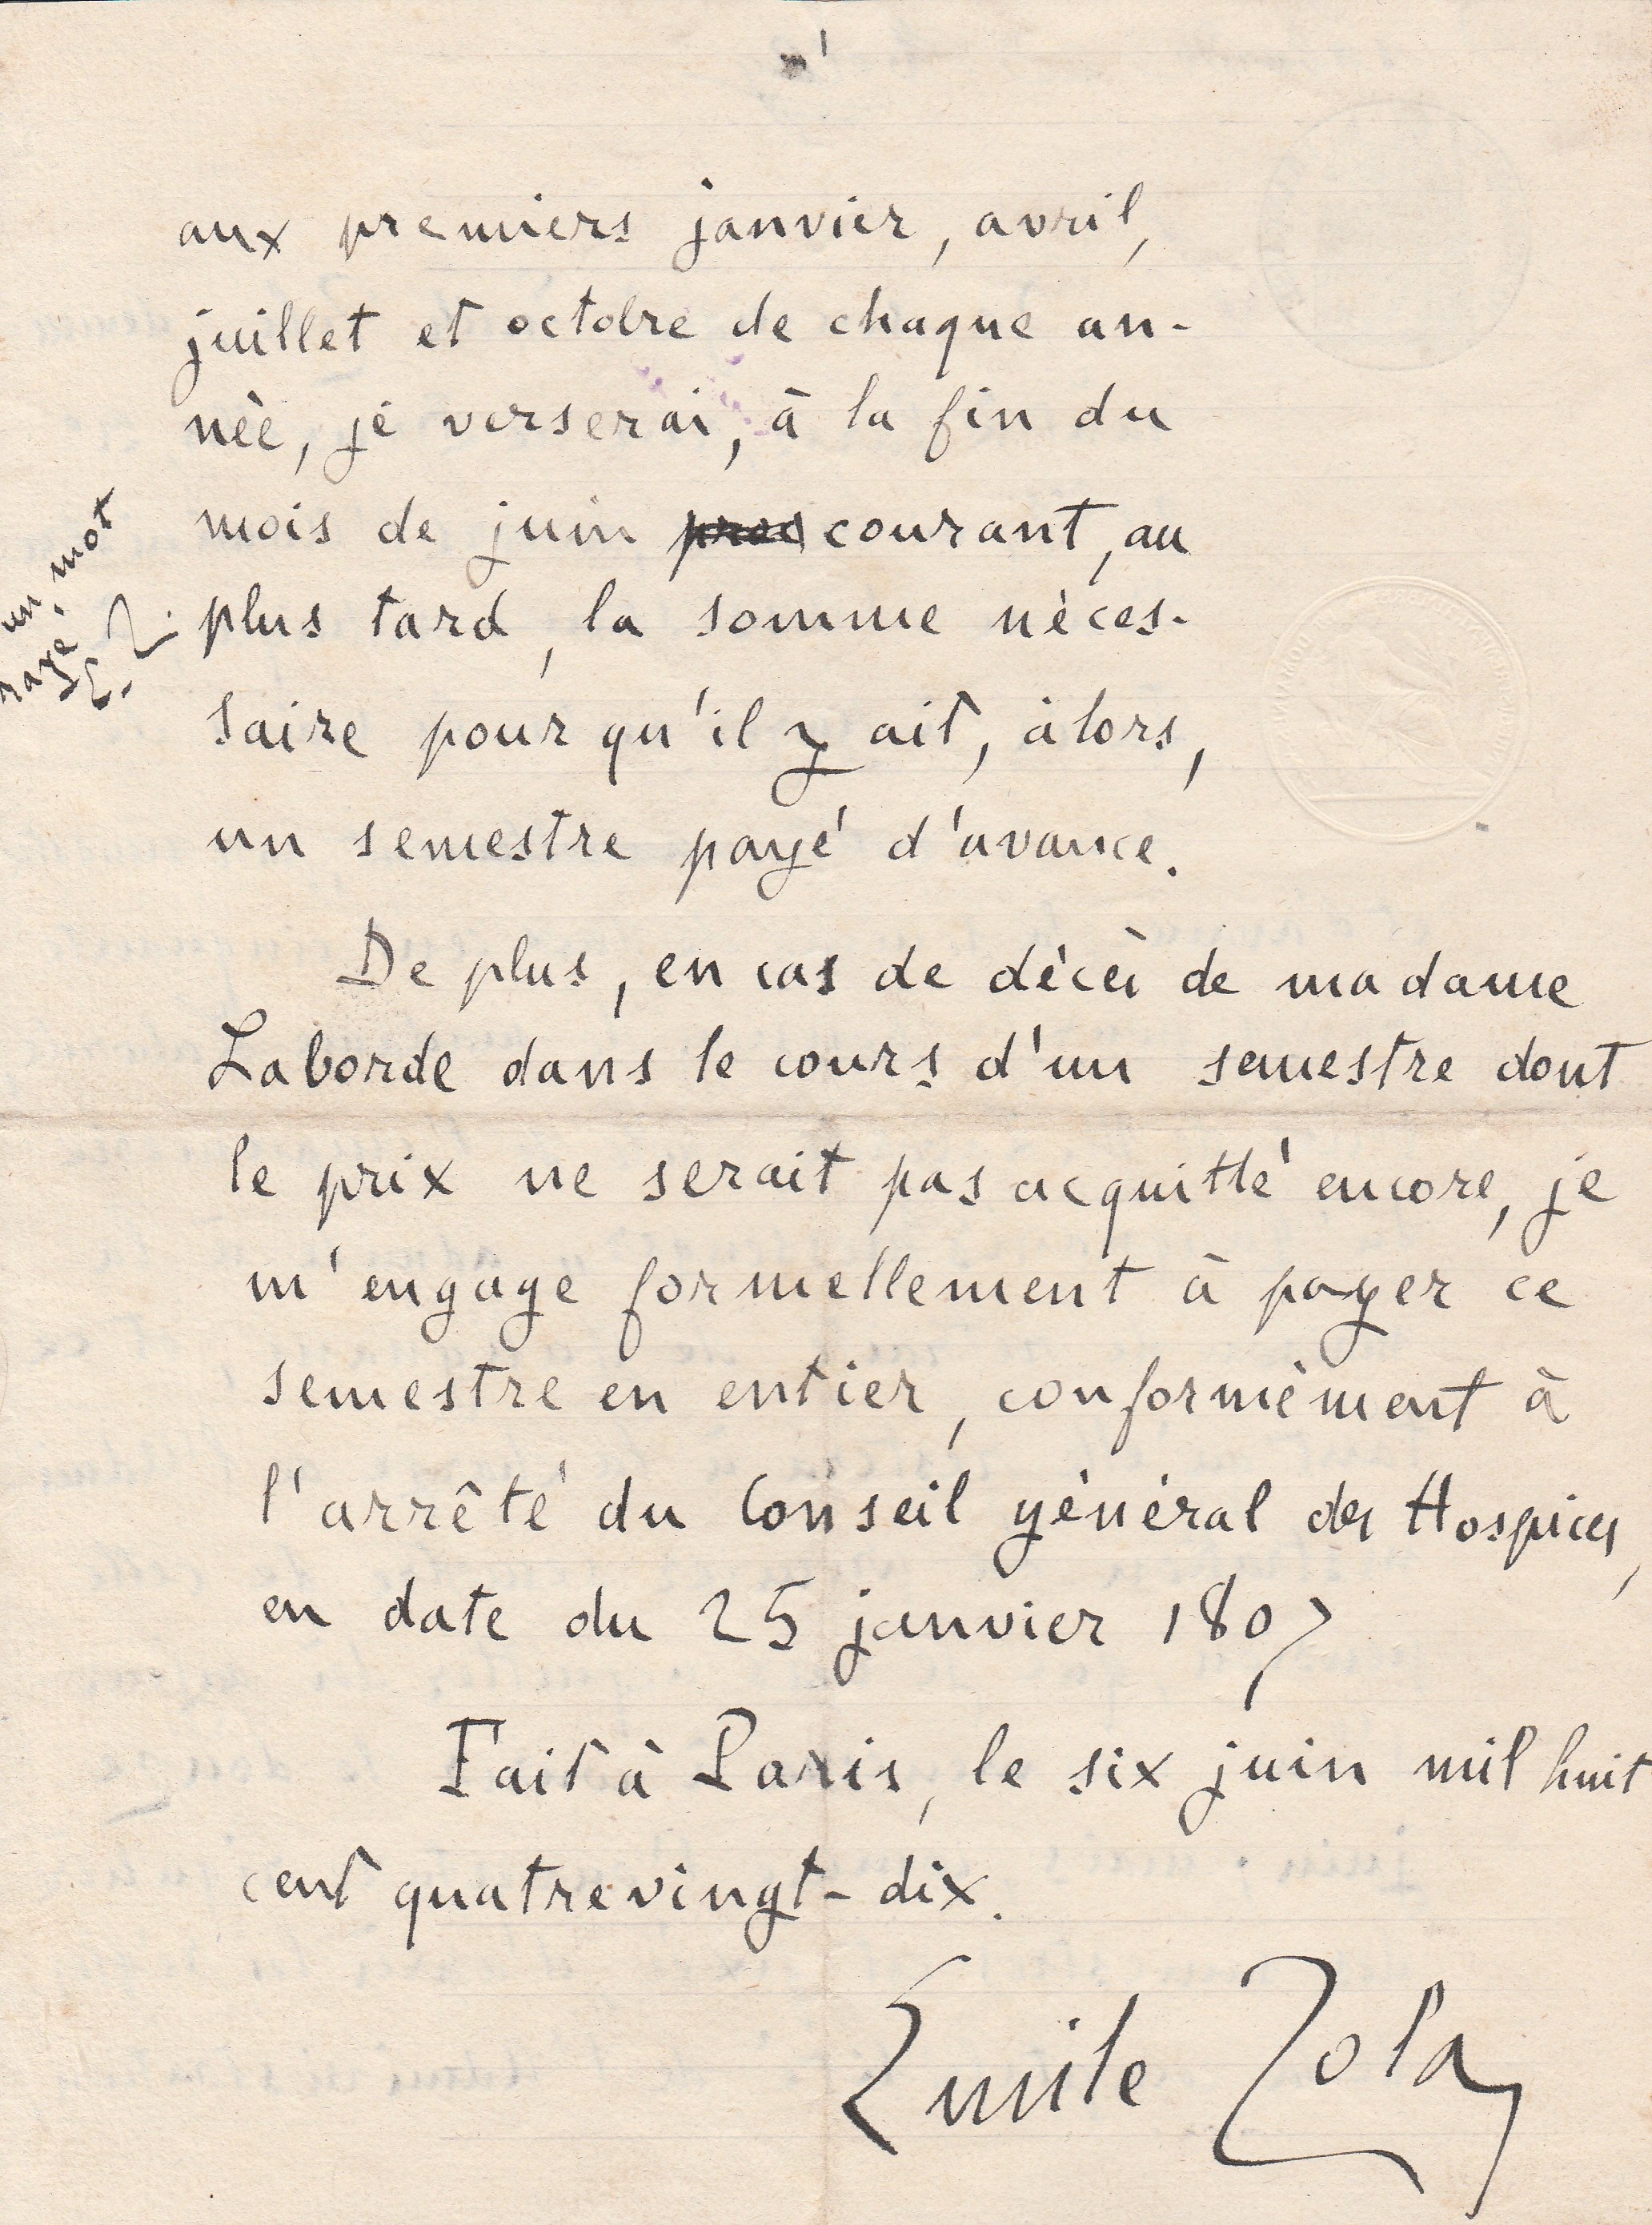 aux premiers janvier, avril,
juillet et octobre de chaque an-
née, je verserai, à la fin du
mois de juin courant, au
plus tard, la somme néces-
saire pour qu'il y ait, alors,
un semestre payé d'avance.
un mot
rayé.
E. Z.
De plus, en cas de décès de madame
Laborde dans le cours d'un semestre dont
le prix ne serait pas acquitté encore, je
m'engage formellement à payer ce
semestre en entier, conformément à
l'arrêté du Conseil général des Hospices,
en date du 25 janvier 1807
Fait à Paris, le six juin mil huit
cent quatrevingt-dix.
Emile Zola